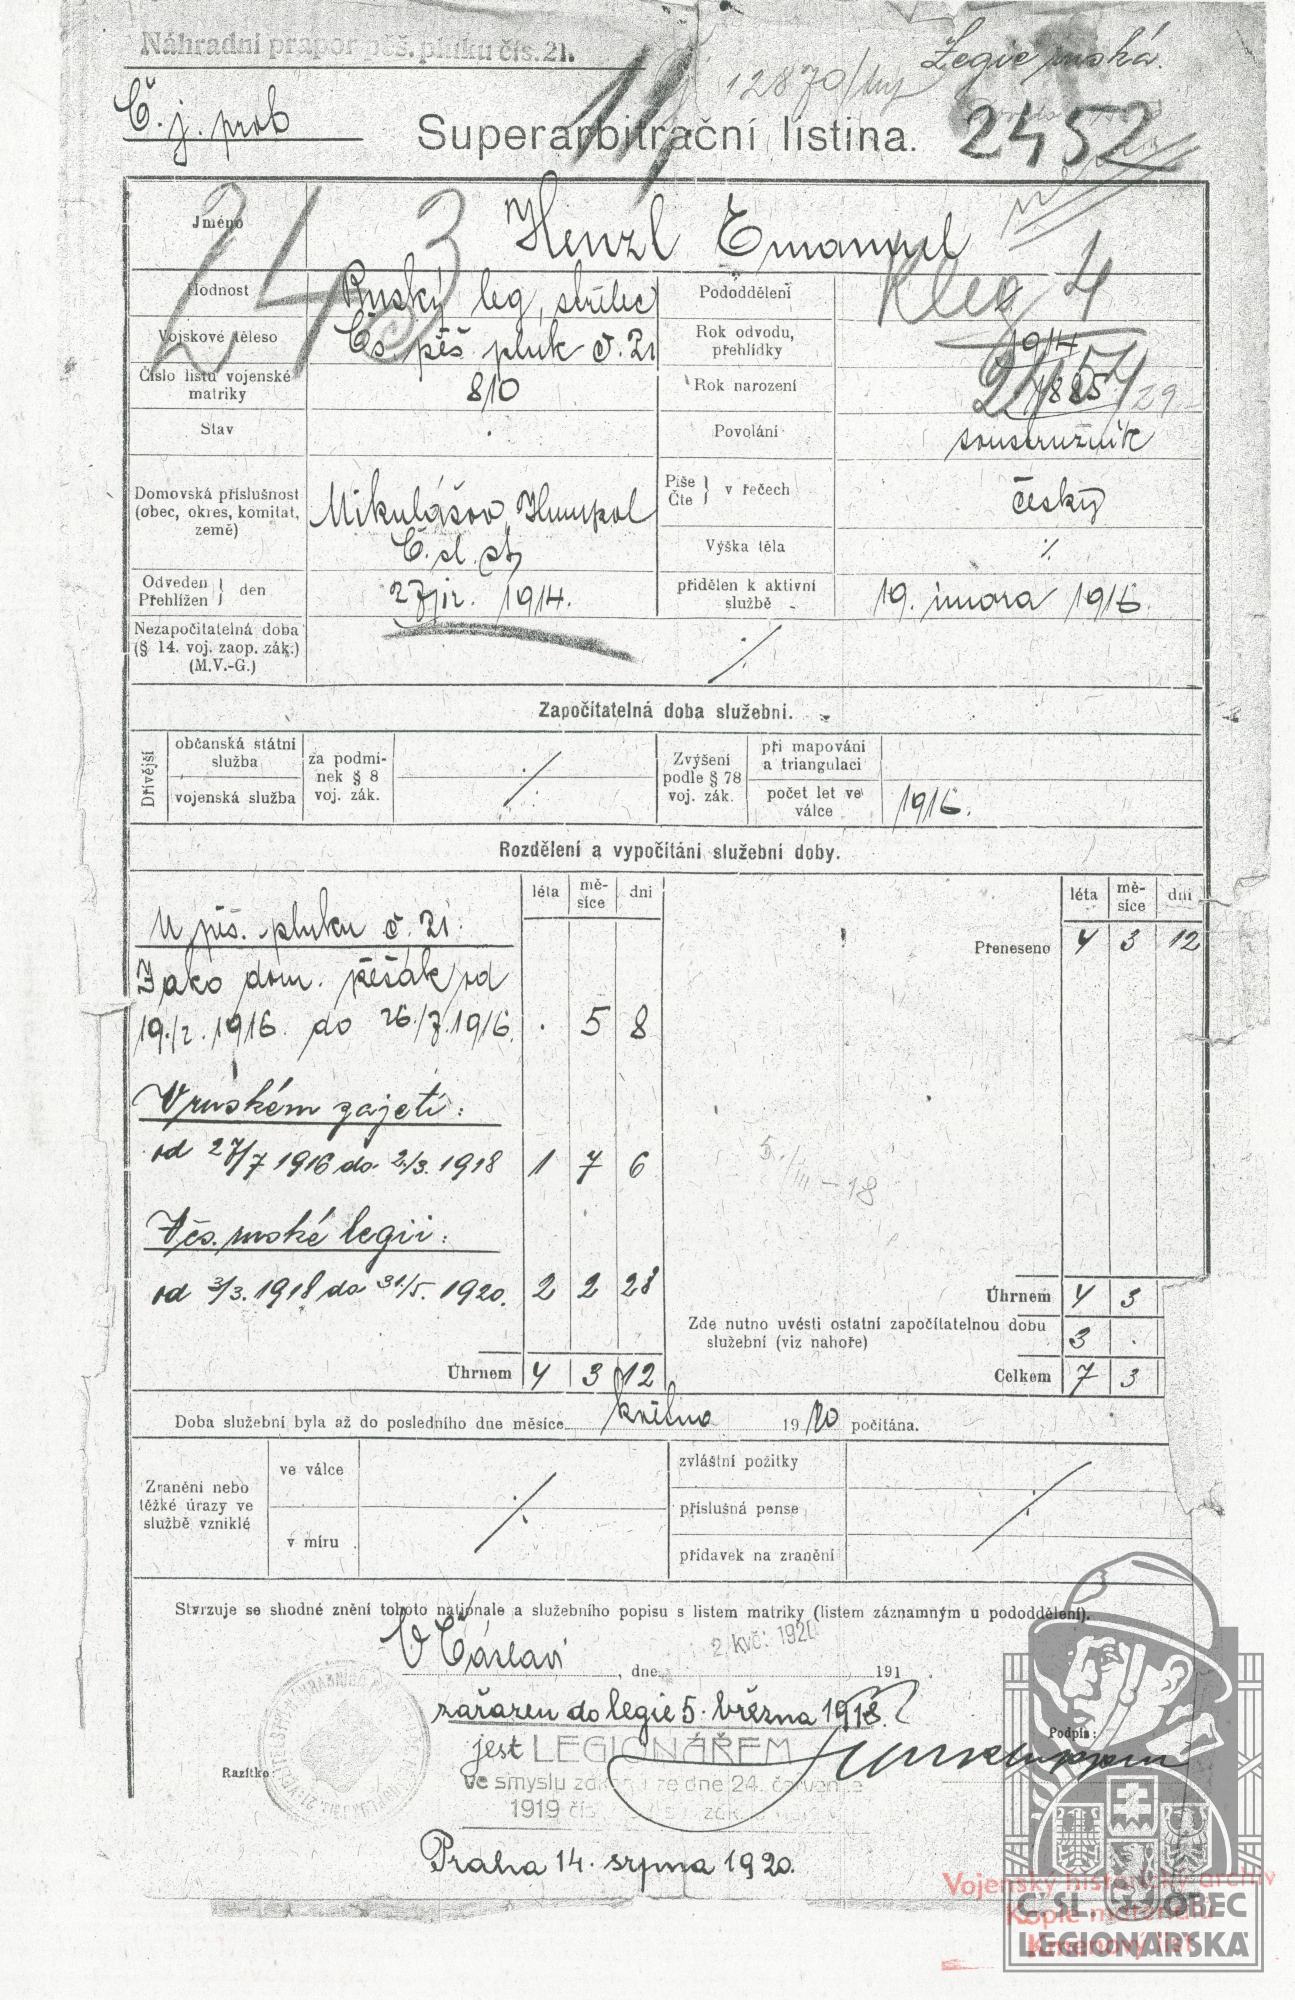 Náhradní prapor pěš. pluku čís. 21.
Legie ruská.
12870
Č. j. prob
Superarbitrační listina.
2452
243
Jméno
Henzl Emanuel
Hodnost
Ruský leg, střelec
Pododdělení
Kleg 4
Vojskové těleso
Čs. pěš. pluk č. 21
Rok odvodu,
přehlídky
1914
Číslo listu vojenské
matriky
810
Rok narození
1885
29
Stav
Povolání
soustružník
Domovská příslušnost
(obec, okres, komitat,
země)
Mikulášov, Humpol
Č. sl. st,
Píše
Čte
v řečech
český
Výška těla
Odveden
Přehlížen
den
27/12. 1914.
přidělen k aktivní
službě
19. února 1916.
Nezapočitatelná doba
(§ 14. voj. zaop. zák.)
(M.V.-G.)
Započítatelná doba služební.
Dřívější
občanská státní
služba
vojenská služba
za podmí-
nek § 8
voj. zák.
Zvýšení
podle § 78
voj. zák.
při mapování
a triangulaci
počet let ve
válce
1916.
Rozdělení a vypočítání služební doby.
léta
mě-
síce
dní
léta
mě-
síce
dní
U pěš. pluku č. 21:
Přeneseno 4 3 12
Jako dom. pěšák od
19./2. 1916. do 26./7. 1916. . 5 8
V ruském zajetí:
od 27/7 1916 do 2./3. 1918 1 7 6
5./III-18
V čs. ruské legii:
od 3/3. 1918 do 31./5. 1920. 2 2 28
Úhrnem 4 3
Zde nutno uvésti ostatní započítatelnou dobu
služební (viz nahoře) 3 .
Úhrnem 4 3 12
Celkem 7 3
Doba služební byla až do posledního dne měsíce května 1920 počítána.
Zranění nebo
těžké úrazy ve
službě vzniklé
ve válce
v míru
zvláštní požitky
příslušná pense
přídavek na zranění
Stvrzuje se shodné znění tohoto nationale a služebního popisu s listem matriky (listem záznamným u pododdělení).
V Čáslavi, dne 2. kvě. 1920 191
zařazen do legie 5. března 1918.
jest LEGIONÁŘEM
Podpis:
Razítko:
ve smyslu zákona ze dne 24. července
1919 čís.
Praha 14. srpna 1920.
Vojenský historický archiv
Kopie materiálu
Kmenový list
Č. SL. OBEC
LEGIONÁŘSKÁ